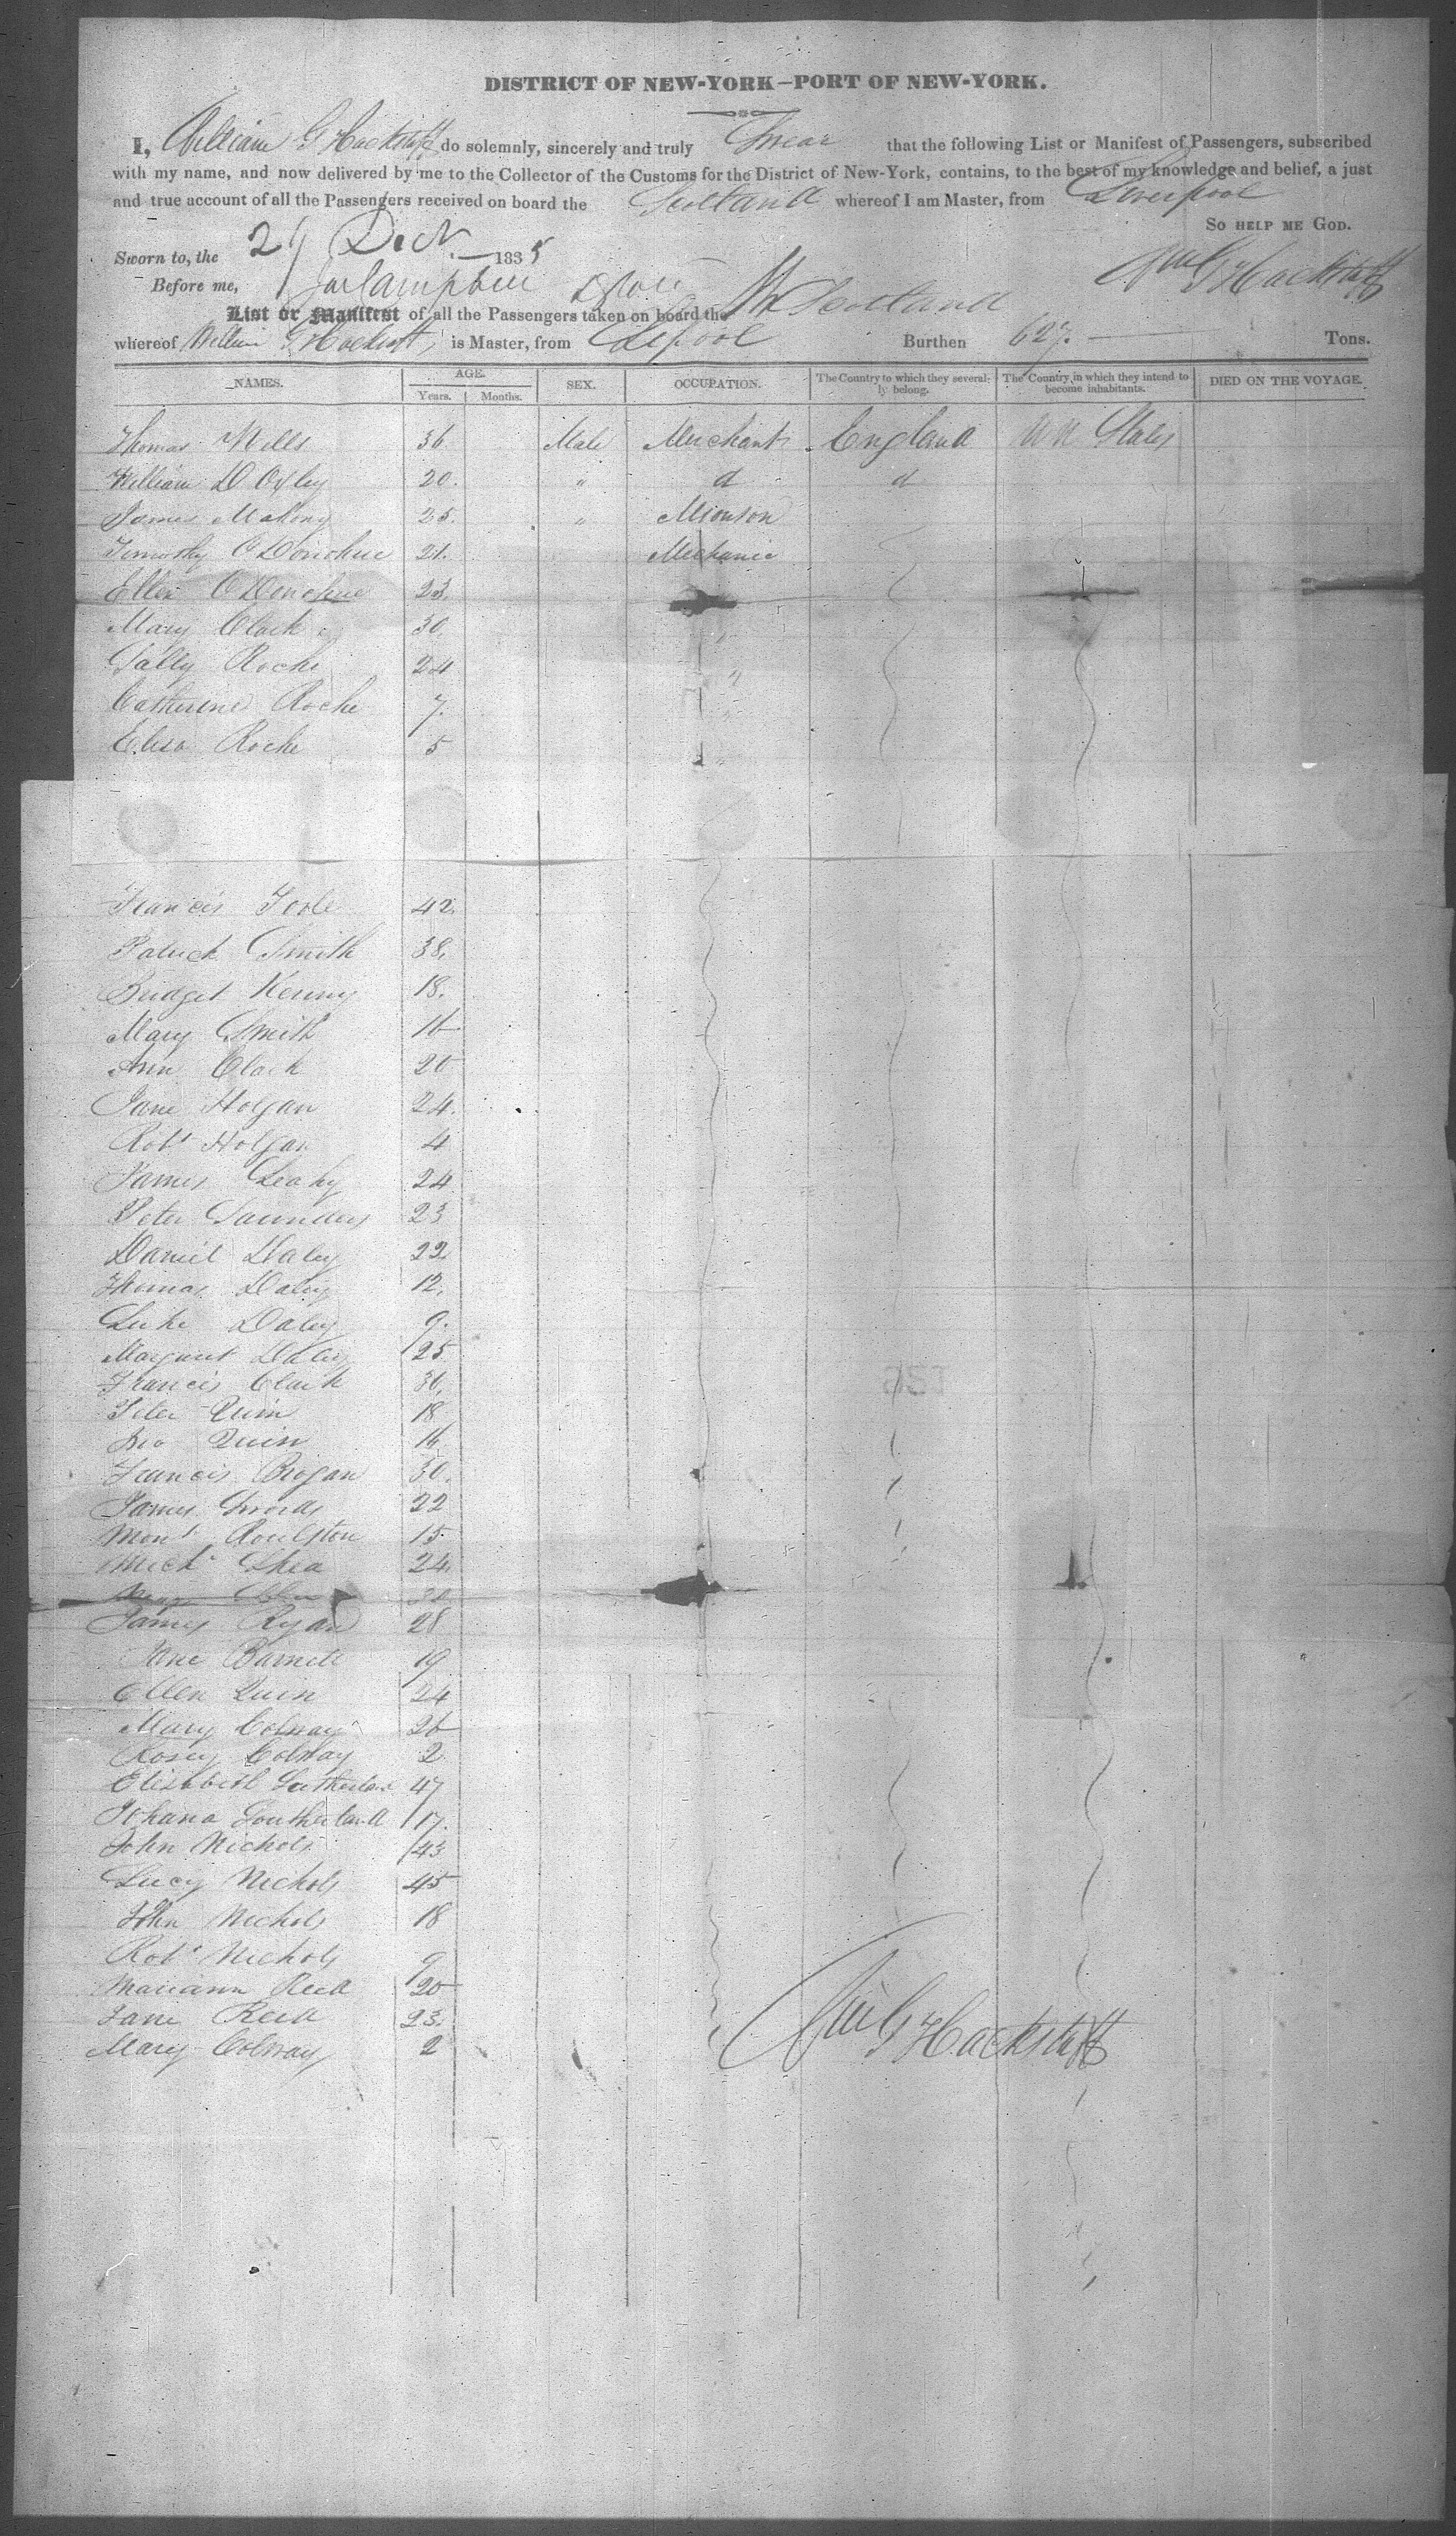 DISTRICT OF NEW-YORK—PORT OF NEW-YORK.
I, William G Hackstaff do solemnly, sincerely and truly Swear that the following List or Manifest of Passengers, subscribed
with my name, and now delivered by me to the Collector of the Customs for the District of New-York, contains, to the best of my knowledge and belief, a just
and true account of all the Passengers received on board the Scotland whereof I am Master, from Liverpool
SO HELP ME GOD.
Sworn to, the 29 Decr 1835
Wm G Hackstaff
Before me, Campbell
List or Manifest of all the Passengers taken on board the Scotland
whereof William G Hackstaff, is Master, from Lepool Burthen 627. Tons.
NAMES. AGE. SEX. OCCUPATION. The Country to which they severally belong. The Country in which they intend to become inhabitants. DIED ON THE VOYAGE.
Years. Months.
Thomas Mills 36 Male Merchant England Un States
William D Oxley 20. " d d
James Mahony 25. "
Timothy O'Donohue 21. Mechanic
Ellen O'Donohue 23.
Mary Clark 30.
Sally Roche 24 "
Catherine Roche 7. "
Elisa Roche 5 "
Francis Toole 42.
Patrick Smith 38.
Bridget Kenny 18.
Mary Smith 16
Ann Clark 20
Jane Holgan 24.
Robt Holgan 4
James Leahy 24
Peter Saunders 23
Daniel Daley 22
Thomas Daley 12.
Luke Daley 9.
Margaret Daley 25
Francis Clark 36.
Peter Quin 18
Quin 16
Francis Brogan 30.
James Swords 22
Roulston 15.
Michl Shea 24.
James Ryan 28
Jane Barnett 19
Ellen Quin 24
Mary Colnay 26
Rosey Colnay 2
Elisabeth Sutherland 47
Johana Southerland 17.
John Nichols 43
Lucy Nichols 45
John Nichols 18
Robt Nichols 9
Mariann Reed 20
Jane Reed 23.
Mary Colnay 2
Wm G Hackstaff